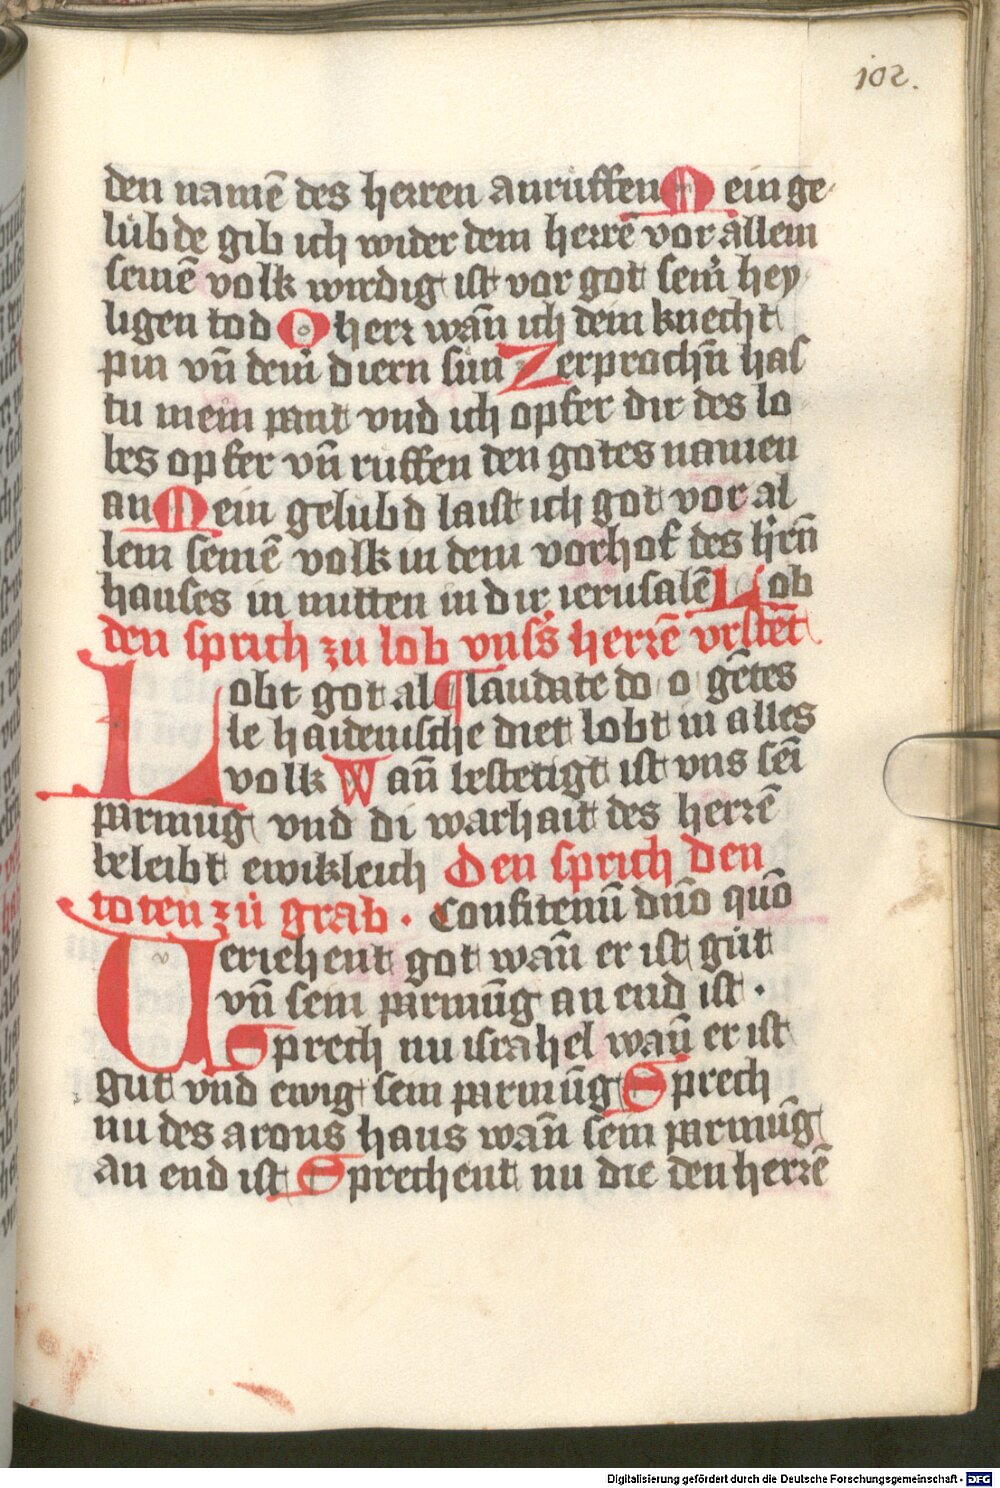 102.
den namē des herren anruffen Mein ge
lubde gib ich wider dem herrē vor allem
seinē volk wirdig ist vor got seiń hey
ligen tod O herr wañ ich dein knecht
pin vñ deiń diern sun Zerprochñ has
tu mein pant vnd ich opfer dir des lo
bes opfer vñ ruffen den gotes namen
an Mein gelubd laist ich got vor al
lem seinē volk in dem vorhof des hrñ
hauses in mitten in dir ierusalē Lob
den sprich zu lob vnss herrē vrstēt
Lobt got al ¶ laudate do o gētes
le haidenische diet lobt in alles
volk Wañ bestetigt ist vns sei
parmūg vnd di warhait des herrē
beleibt ewikleich Den sprich den
toten zu grab . Confitemī dño quō
Veriehent got wañ er ist gut
vñ sein parmūg an end ist .
Sprech nu israhel wañ er ist
gut vnd ewig sein parmūg Sprech
nu des arons haus wañ sein parmūg
an end ist Sprechent nu die den herrē
Digitalisierung gefördert durch die Deutsche Forschungsgemeinschaft - DFG